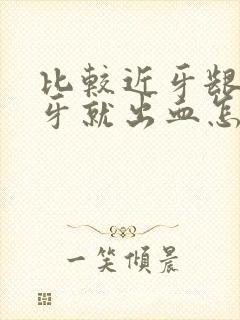 比较近牙龈
牙就出血怎
一笑倾晨